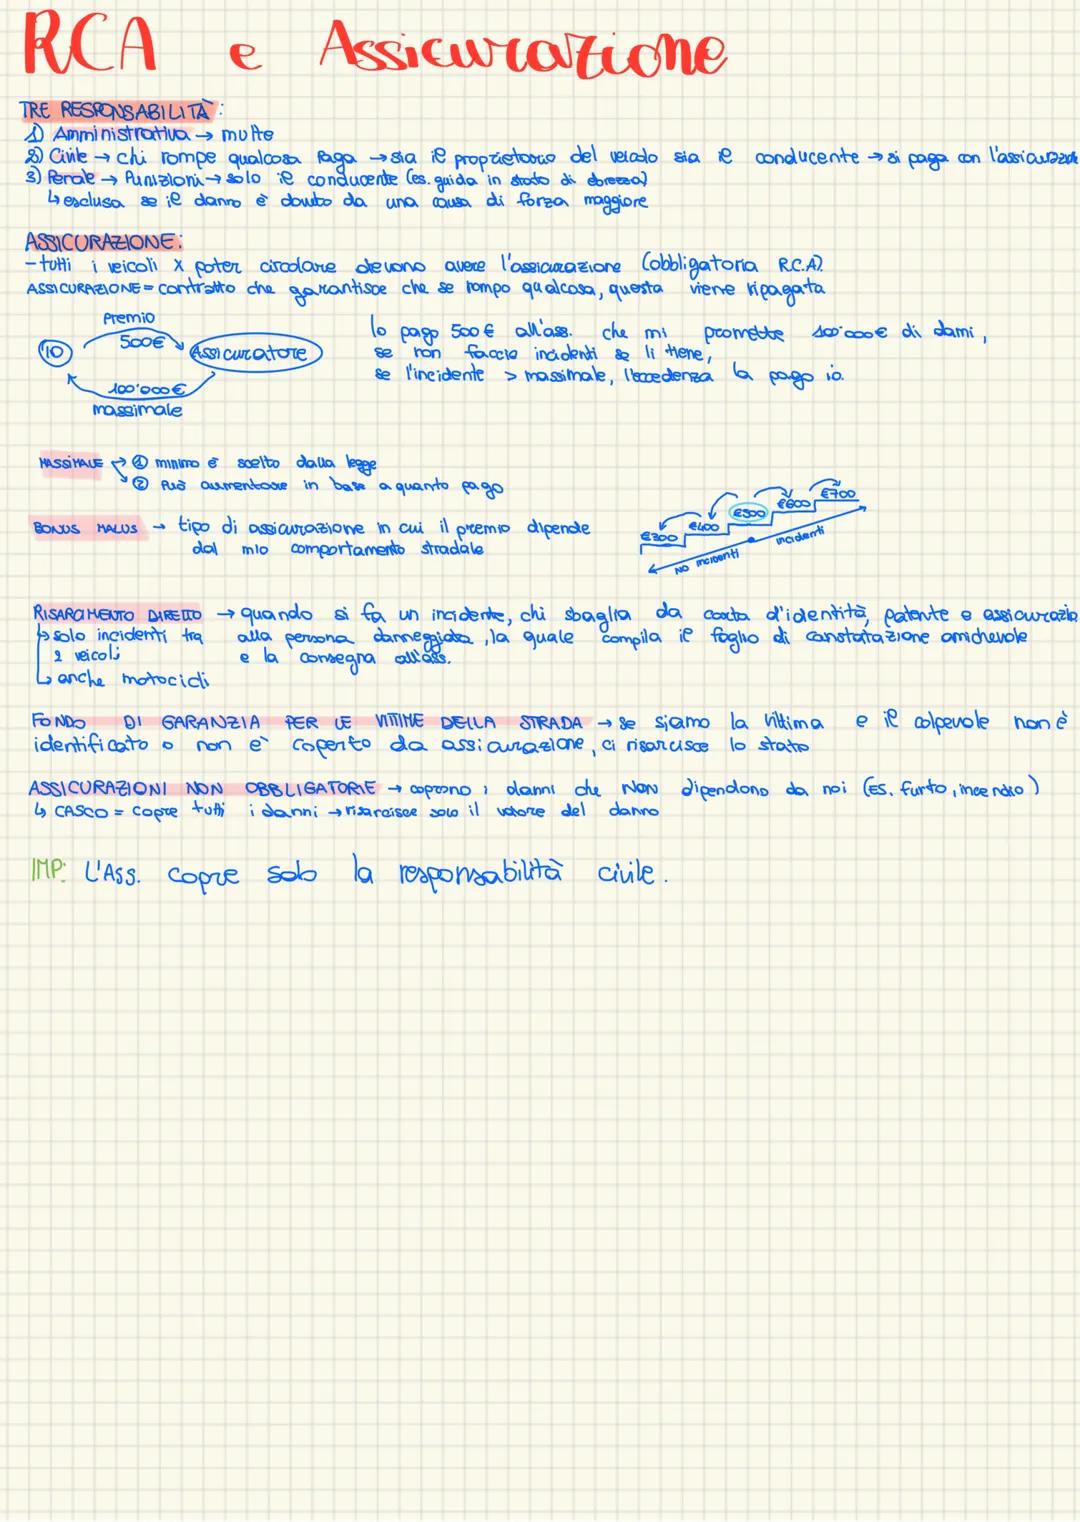 RCA e Assicurazione
TRE RESPONSABILITÀ:
1) Amministrativa → multe
2) Civile → chi rompe qualcosa paga → sia il proprietario del veicolo sia il conducente → si paga con l'assicurazione
3) Penale → Punizioni → solo il conducente (es. guida in stato di ebrezza)
↳ esclusa se il danno è dovuto da una causa di forza maggiore
ASSICURAZIONE:
- tutti i veicoli x poter circolare devono avere l'assicurazione (obbligatoria R.C.A).
ASSICURAZIONE = contratto che garantisce che se rompo qualcosa, questa viene ripagata
Premio
500€
IO
Assicuratore
100'000€
massimale
Io pago 500€ all'ass. che mi promette 100'000€ di danni,
se non faccio incidenti se li tiene,
se l'incidente > massimale, l'eccedenza la pago io.
MASSIMALE → ① minimo è scelto dalla legge
② Può aumentare in base a quanto pago
BONUS MALUS → tipo di assicurazione in cui il premio dipende
dal mio comportamento stradale
€300 €400 €500 €600 €700
NO incidenti incidenti
RISARCIMENTO DIRETTO → quando si fa un incidente, chi sbaglia da carta d'identità, patente e assicurazio
↳ solo incidenti tra alla persona danneggiata, la quale compila il foglio di constatazione amichevole
2 veicoli e la consegna all'ass.
↳ anche motocicli
FONDO DI GARANZIA PER LE VITTIME DELLA STRADA → se siamo la vittima e il colpevole non è
identificato o non è coperto da assicurazione, ci risarcisce lo stato
ASSICURAZIONI NON OBBLIGATORIE → coprono i danni che NON dipendono da noi (ES. furto, incendio)
↳ CASCO = copre tutti i danni → risarcisce solo il valore del danno
IMP: L'Ass. copre solo la responsabilità civile.